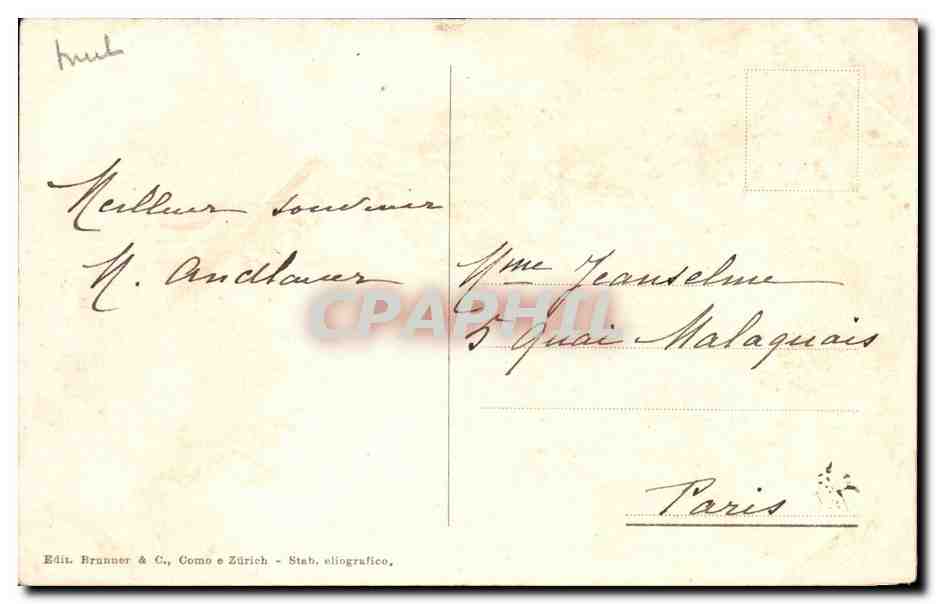 Meilleur souvenir
M. Andlauer
Mme Jeanselme
5 Quai Malaquais
Paris
CPAPHIL
Edit. Brunner & C., Como e Zürich - Stab. eliografico.